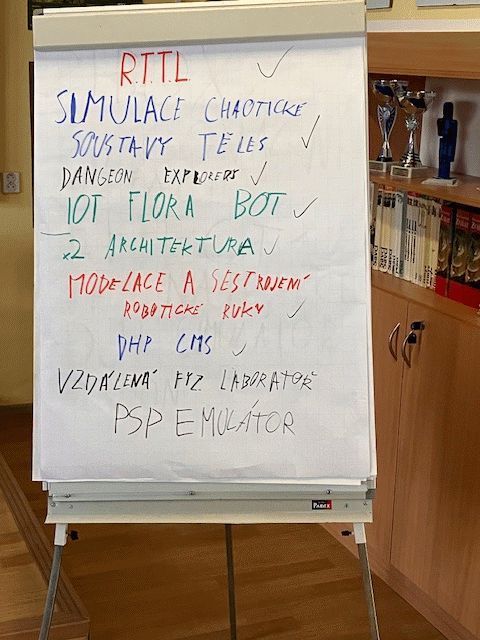 R.T.T.L ✓
SIMULACE CHAOTICKÉ
SOUSTAVY TĚLES ✓
DANGEON EXPLORERS ✓
IOT FLORA BOT ✓
x2 ARCHITEKTURA ✓
MODELACE A SESTROJENÍ
ROBOTICKÉ RUKY ✓
PHP CMS ✓
VZDÁLENÁ FYZ. LABORATOŘ
PSP EMULÁTOR